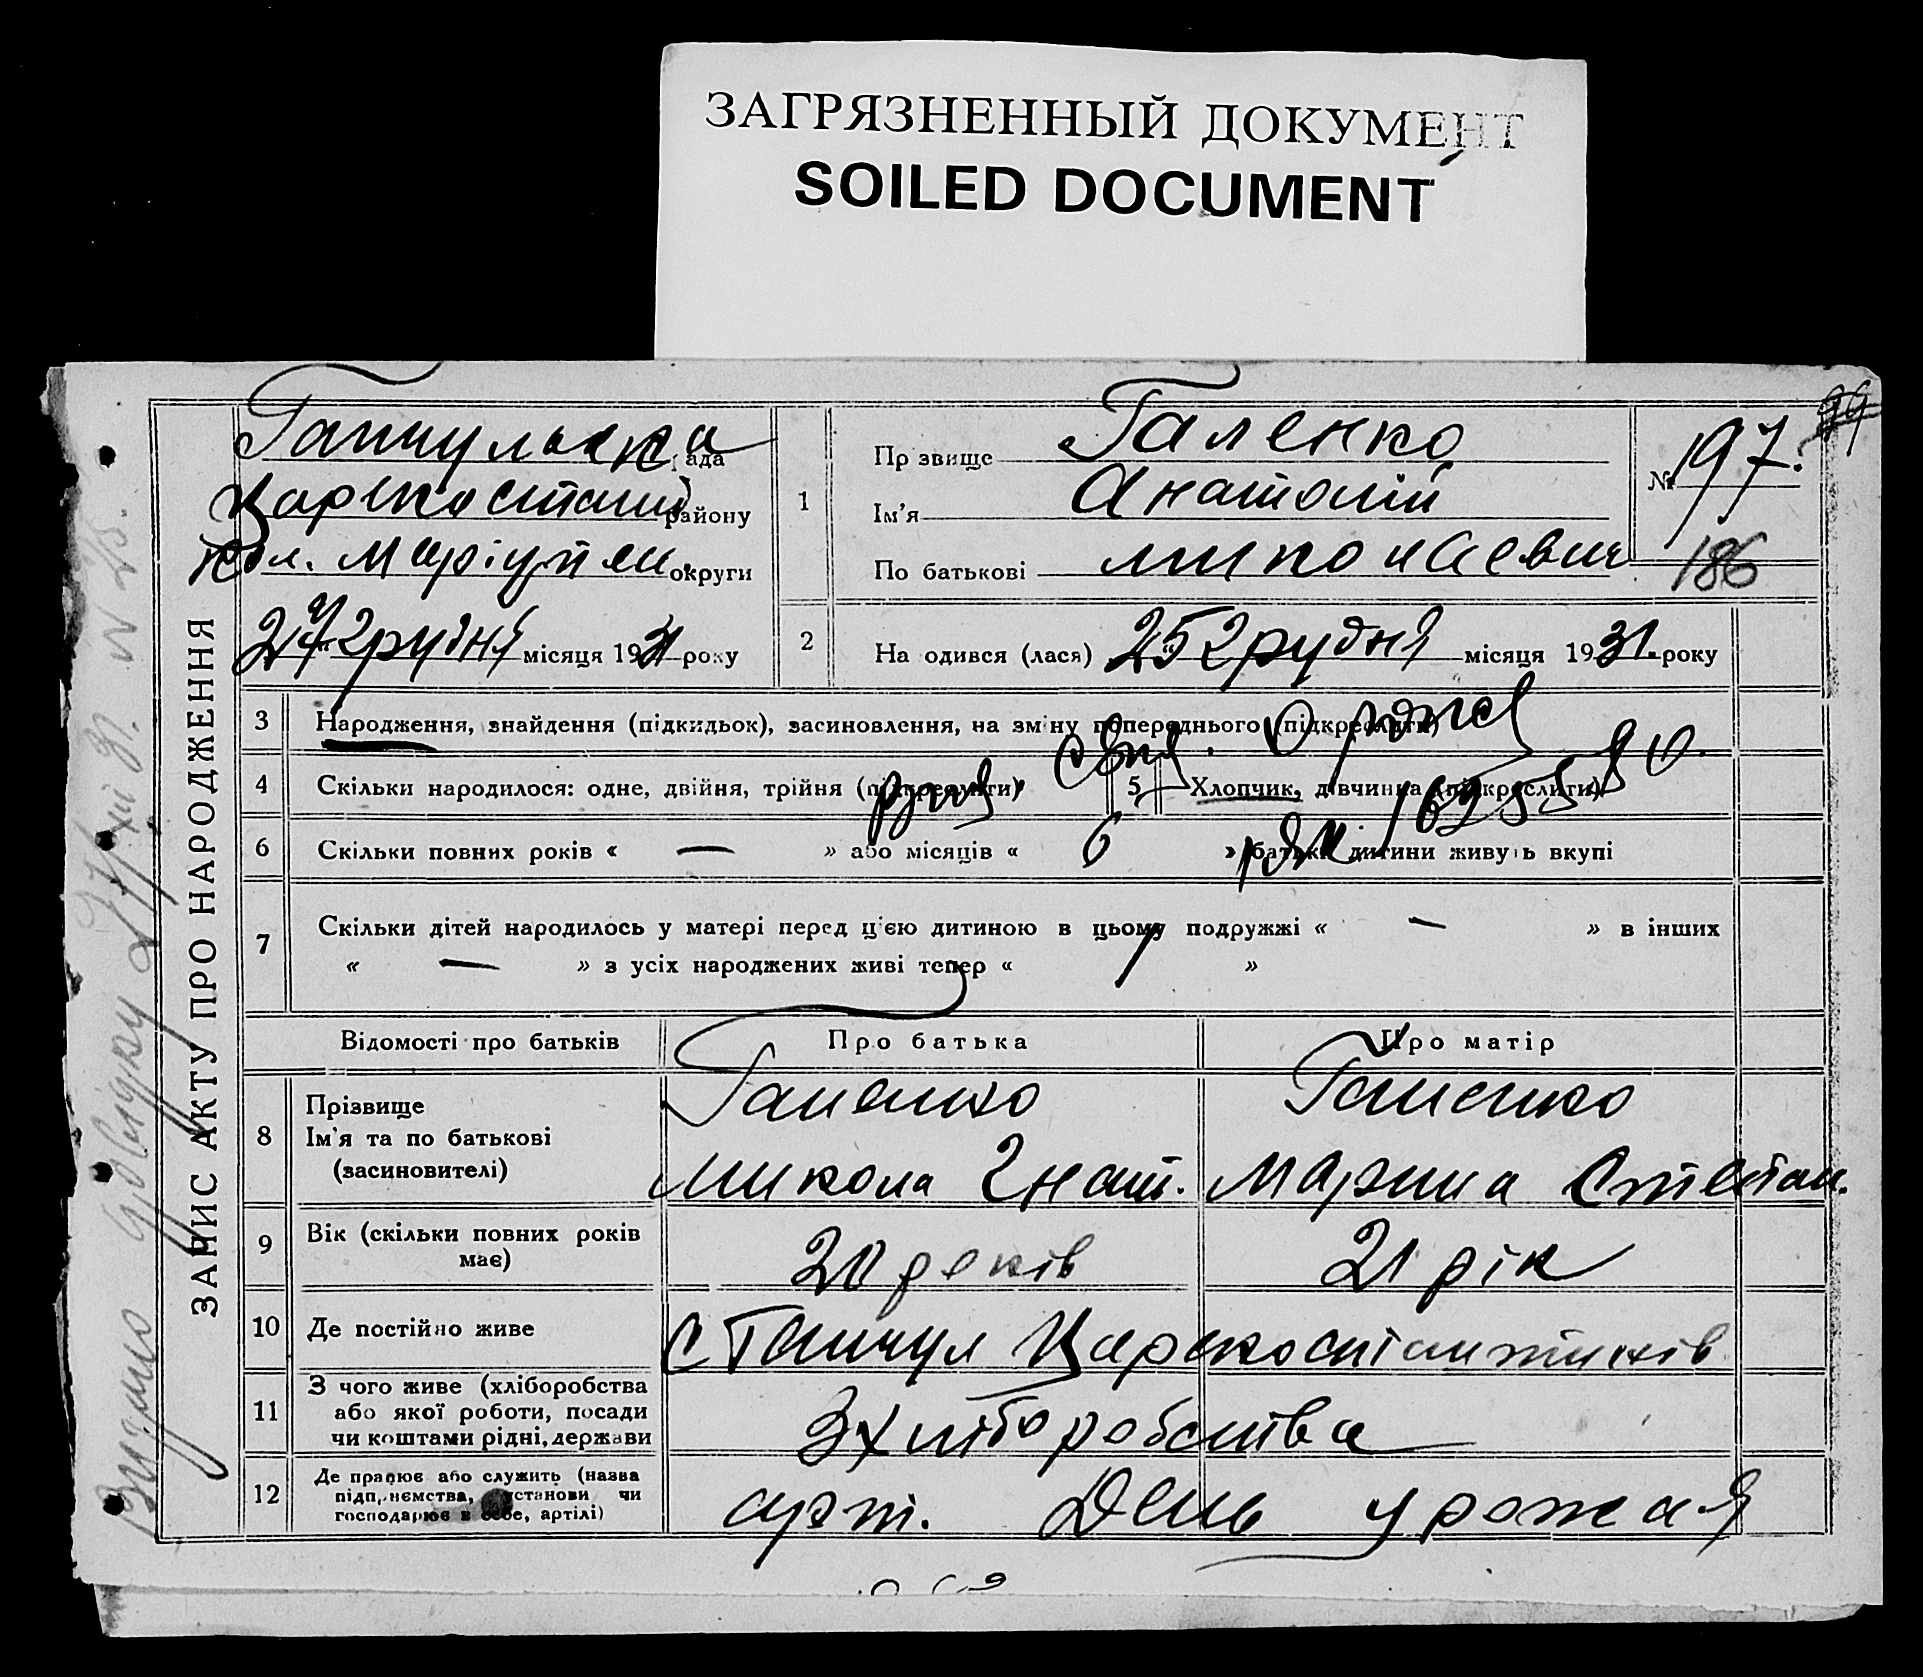 ЗАГРЯЗНЕННЫЙ ДОКУМЕНТ
SOILED DOCUMENT
ЗАПИС АКТУ ПРО НАРОДЖЕННЯ
рада
району
Маріупіл. округи
27 грудня місяця 1931 року
1
Прізвище Галенко
Ім'я Анатолій
По батькові Миколаевич
№ 197.
186
99
2
Народився (лася) 25 грудня місяця 1931. року
3 Народження, знайдення (підкидьок), засиновлення, на зміну попереднього (підкреслити)
4 Скільки народилося: одне, двійня, трійня (підкреслити)
5 Хлопчик, дівчинка (підкреслити)
6 Скільки повних років « — » або місяців « 6 » батьки дитини живуть вкупі
7 Скільки дітей народилось у матері перед цією дитиною в цьому подружжі « — » в інших
« — » з усіх народжених живі тепер « 1 »
Відомості про батьків Про батька Про матір
8 Прізвище
Ім'я та по батькові
(засиновителі)
Галенко Галенко
Микола Гнат. Марина Степан.
9 Вік (скільки повних років
має)
20 років 21 рік
10 Де постійно живе
11 З чого живе (хліборобства
або якої роботи, посади
чи коштами рідні, держави
З хліборобства
12 Де працює або служить (назва
підприємства, установи чи
господарює в себе, артілі)
арт. День урожая